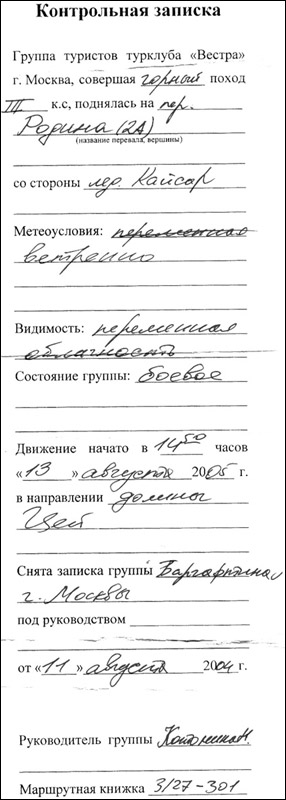 Контрольная записка
Группа туристов турклуба «Вестра»
г. Москва, совершая горный поход
III к.с, поднялась на пер.
Родина (2А)
(название перевала, вершины)
со стороны лед. Кайсар
Метеоусловия: переменная
ветренно
Видимость: переменная
облачность
Состояние группы: боевое
Движение начато в 14 50 часов
«13» августа 2005 г.
в направлении долины
Цей
Снята записка группы
г. Москвы
под руководством
от «11» августа 2004 г.
Руководитель группы
Маршрутная книжка 3/27-301